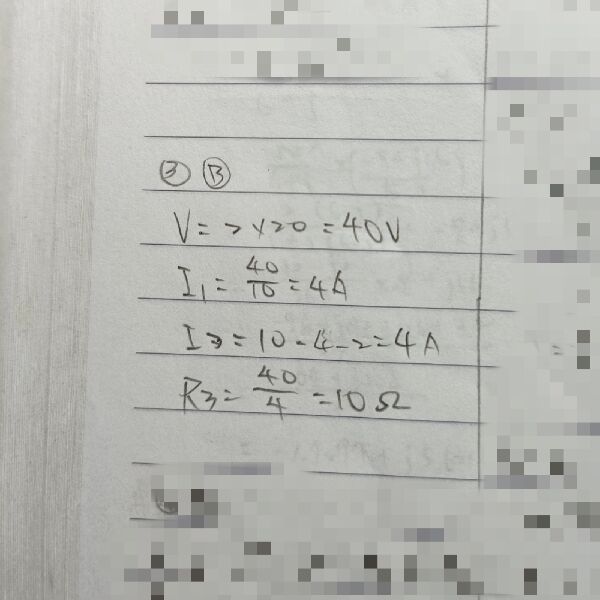 ③ Ⓑ
V = 2×20 = 40V
I₁ = 40/10 = 4A
I₃ = 10-4-2 = 4A
R₃ = 40/4 = 10Ω